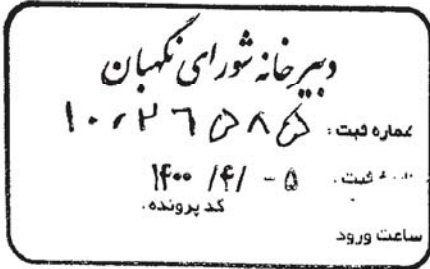 دبیرخانه شورای نگهبان
شماره ثبت: ۱۰/۲۶۵۸۵
تاریخ ثبت: ۱۴۰۰/۴/-۵
کد پرونده.
ساعت ورود